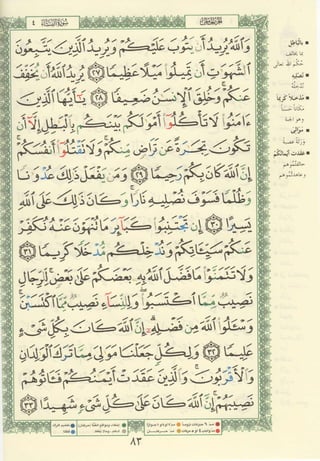 سورة النساء ٤
وَاللَّهُ يُرِيدُ أَن يَتُوبَ عَلَيْكُمْ وَيُرِيدُ الَّذِينَ يَتَّبِعُونَ
الشَّهَوَاتِ أَن تَمِيلُوا مَيْلًا عَظِيمًا ٢٧ يُرِيدُ اللَّهُ أَن يُخَفِّفَ
عَنكُمْ وَخُلِقَ الْإِنسَانُ ضَعِيفًا ٢٨ يَا أَيُّهَا الَّذِينَ
ءَامَنُوا لَا تَأْكُلُوا أَمْوَالَكُم بَيْنَكُم بِالْبَاطِلِ إِلَّا أَن
تَكُونَ تِجَارَةً عَن تَرَاضٍ مِّنكُمْ وَلَا تَقْتُلُوا أَنفُسَكُمْ
إِنَّ اللَّهَ كَانَ بِكُمْ رَحِيمًا ٢٩ وَمَن يَفْعَلْ ذَٰلِكَ عُدْوَانًا
وَظُلْمًا فَسَوْفَ نُصْلِيهِ نَارًا وَكَانَ ذَٰلِكَ عَلَى اللَّهِ
يَسِيرًا ٣٠ إِن تَجْتَنِبُوا كَبَائِرَ مَا تُنْهَوْنَ عَنْهُ نُكَفِّرْ
عَنكُمْ سَيِّئَاتِكُمْ وَنُدْخِلْكُم مُّدْخَلًا كَرِيمًا ٣١
وَلَا تَتَمَنَّوْا مَا فَضَّلَ اللَّهُ بِهِ بَعْضَكُمْ عَلَىٰ بَعْضٍ لِّلرِّجَالِ
نَصِيبٌ مِّمَّا اكْتَسَبُوا وَلِلنِّسَاءِ نَصِيبٌ مِّمَّا اكْتَسَبْنَ
وَسْئَلُوا اللَّهَ مِن فَضْلِهِ إِنَّ اللَّهَ كَانَ بِكُلِّ شَيْءٍ
عَلِيمًا ٣٢ وَلِكُلٍّ جَعَلْنَا مَوَالِيَ مِمَّا تَرَكَ الْوَالِدَانِ
وَالْأَقْرَبُونَ وَالَّذِينَ عَقَدَتْ أَيْمَانُكُمْ فَئَاتُوهُمْ
نَصِيبَهُمْ إِنَّ اللَّهَ كَانَ عَلَىٰ كُلِّ شَيْءٍ شَهِيدًا ٣٣
٨٣